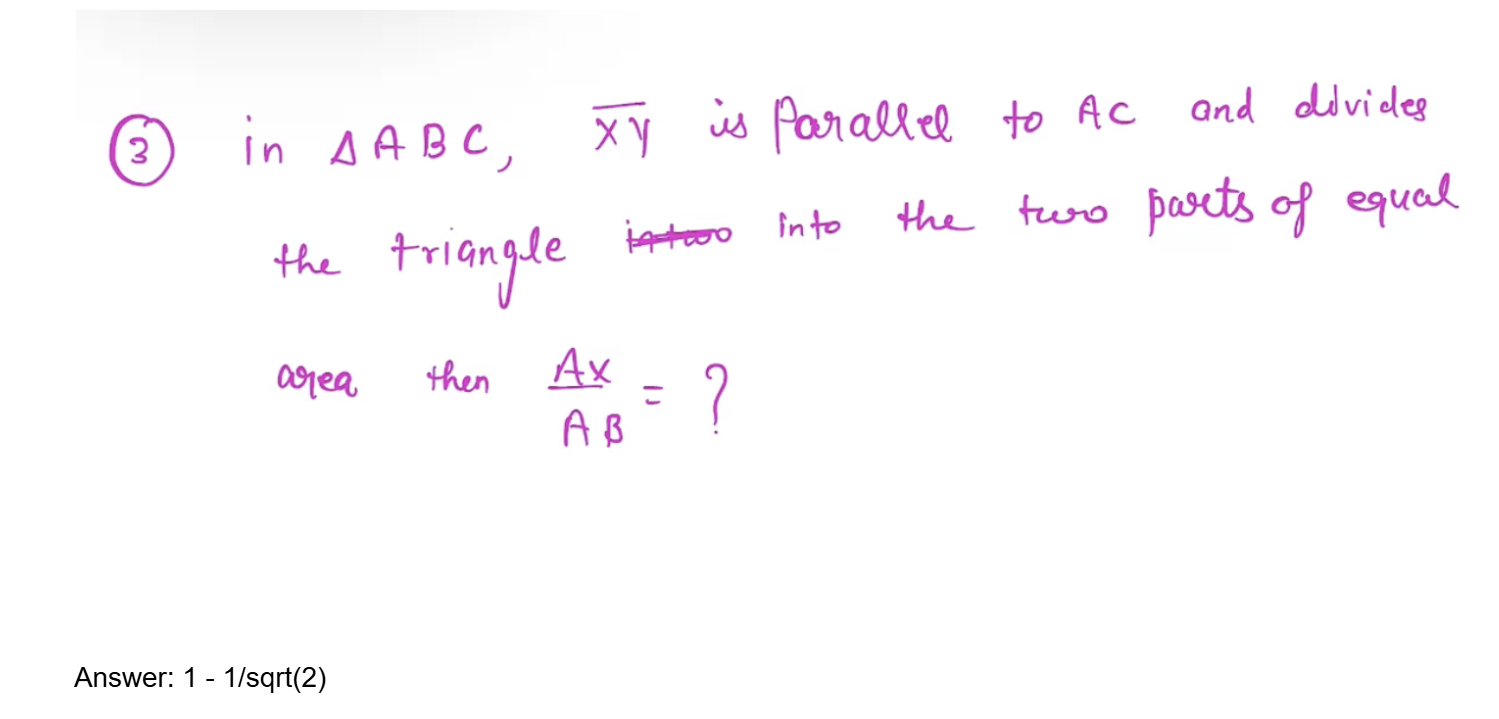 ③ in △ABC, X̅Y̅ is Parallel to AC and divides
the triangle ~~intwo~~ into the two parts of equal
area then AX/AB = ?
Answer: 1 - 1/sqrt(2)